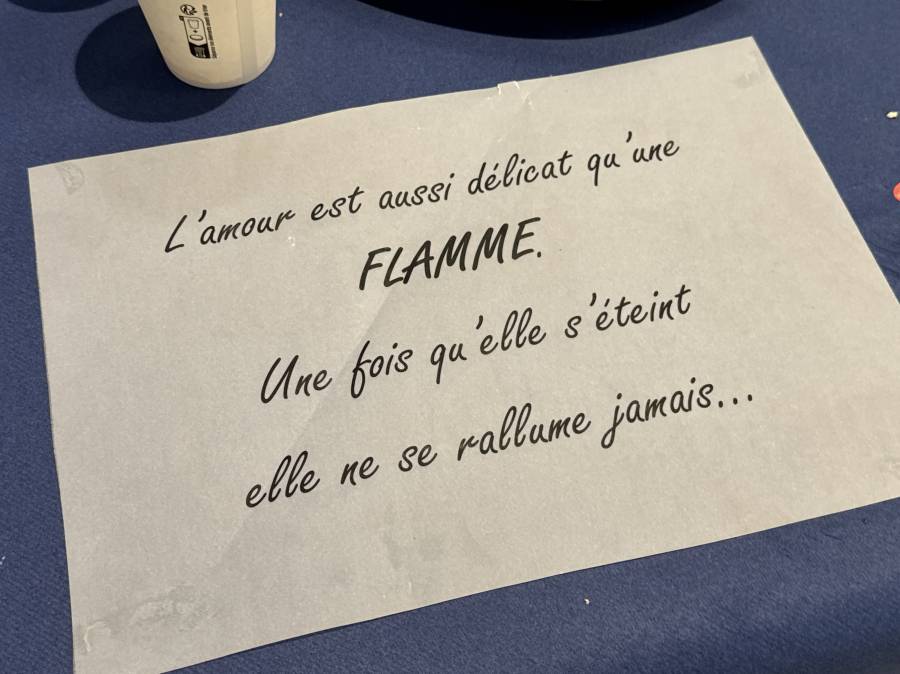 L'amour est aussi délicat qu'une
FLAMME.
Une fois qu'elle s'éteint
elle ne se rallume jamais...